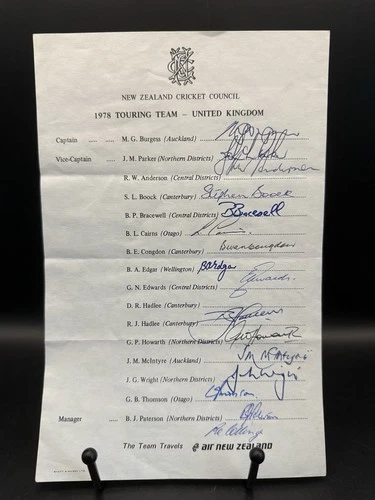 NEW ZEALAND CRICKET COUNCIL
1978 TOURING TEAM – UNITED KINGDOM
Captain .... .... M. G. Burgess (Auckland)
Vice-Captain .... J. M. Parker (Northern Districts)
R. W. Anderson (Central Districts)
S. L. Boock (Canterbury) Stephen Boock
B. P. Bracewell (Central Districts) B Bracewell
B. L. Cairns (Otago)
B. E. Congdon (Canterbury) Bevan Congdon
B. A. Edgar (Wellington) BA Edgar
G. N. Edwards (Central Districts) Edwards
D. R. Hadlee (Canterbury)
R. J. Hadlee (Canterbury)
G. P. Howarth (Northern Districts)
J. M. McIntyre (Auckland) J M McIntyre
J. G. Wright (Northern Districts) John Wright
G. B. Thomson (Otago)
Manager .... B. J. Paterson (Northern Districts)
The Team Travels air new zealand